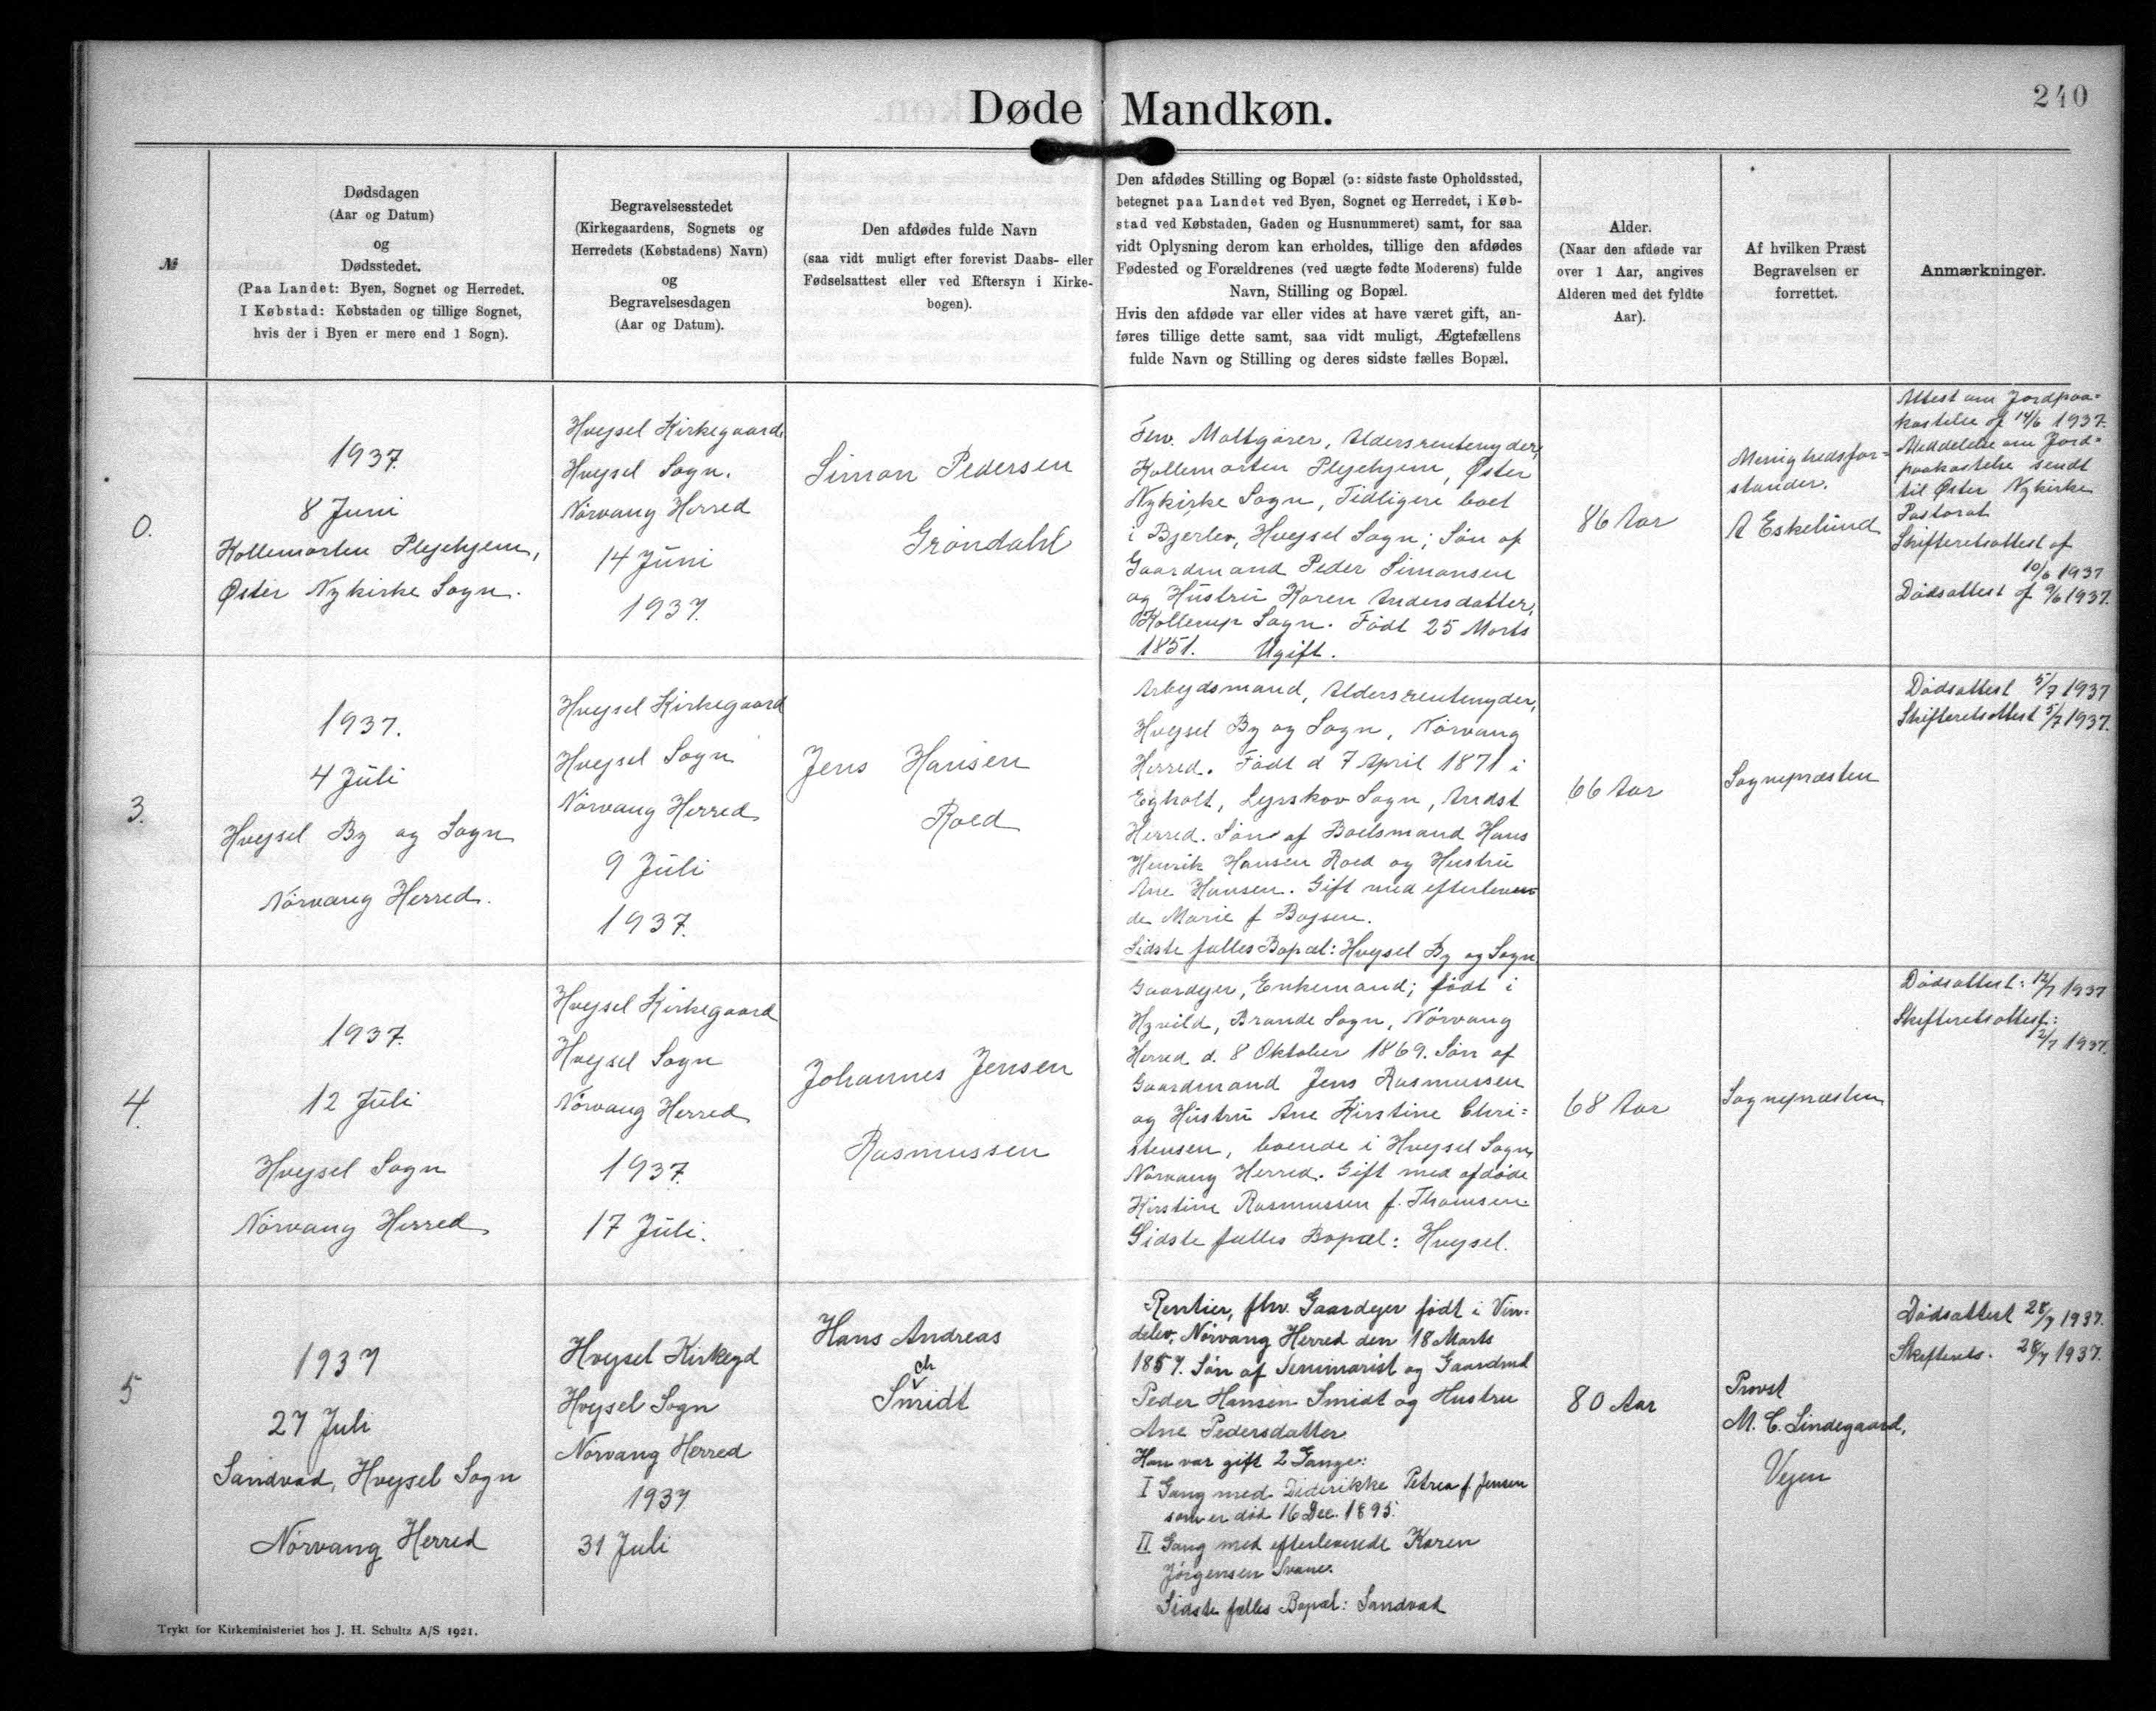 240
Døde Mandkøn.
№
Dødsdagen
(Aar og Datum)
og
Dødsstedet.
(Paa Landet: Byen, Sognet og Herredet.
I Købstad: Købstaden og tillige Sognet,
hvis der i Byen er mere end 1 Sogn).
Begravelsesstedet
(Kirkegaardens, Sognets og
Herredets (Købstadens) Navn)
og
Begravelsesdagen
(Aar og Datum).
Den afdødes fulde Navn
(saa vidt muligt efter forevist Daabs- eller
Fødselsattest eller ved Eftersyn i Kirke-
bogen).
Den afdødes Stilling og Bopæl (ɔ: sidste faste Opholdssted,
betegnet paa Landet ved Byen, Sognet og Herredet, i Køb-
stad ved Købstaden, Gaden og Husnummeret) samt, for saa
vidt Oplysning derom kan erholdes, tillige den afdødes
Fødested og Forældrenes (ved uægte fødte Moderens) fulde
Navn, Stilling og Bopæl.
Hvis den afdøde var eller vides at have været gift, an-
føres tillige dette samt, saa vidt muligt, Ægtefællens
fulde Navn og Stilling og deres sidste fælles Bopæl.
Alder.
(Naar den afdøde var
over 1 Aar, angives
Alderen med det fyldte
Aar).
Af hvilken Præst
Begravelsen er
forrettet.
Anmærkninger.
0.
1937.
8 Juni
Kollemorten Plejehjem,
Øster Nykirke Sogn.
Hvejsel Kirkegaard.
Hvejsel Sogn.
Nørvang Herred
14 Juni
1937.
Simon Pedersen
Grøndahl
Fhv. Maltgører, Aldersrentenyder,
Kollemorten Plejehjem, Øster
Nykirke Sogn, Tidligere boet
i Bjerlev, Hvejsel Sogn; Søn af
Gaardmand Peder Simonsen
og Hustru Karen Andersdatter,
Kollerup Sogn. Født 25 Marts
1851. Ugift.
86 Aar
Menighedsfor=
stander.
A Eskelund
Attest om Jordpaa=
kastelse af 14/6 1937.
Meddelelse om Jord=
paakastelse sendt
til Øster Nykirke
Pastorat
Skifteretsattest af
10/6 1937
Dødsattest af 9/6 1937.
3.
1937.
4 Juli
Hvejsel By og Sogn
Nørvang Herred.
Hvejsel Kirkegaard
Hvejsel Sogn
Nørvang Herred
9 Juli
1937.
Jens Hansen
Roed
Arbejdsmand, Aldersrentenyder,
Hvejsel By og Sogn, Nørvang
Herred. Født d 7 April 1871 i
Egholt, Lejrskov Sogn, Andst
Herred. Søn af Boelsmand Hans
Henrik Hansen Roed og Hustru
Ane Hansen. Gift med efterleven=
de Marie f Bojsen.
Sidste fælles Bopæl: Hvejsel By og Sogn
66 Aar
Sognepræsten
Dødsattest 5/7 1937
Skifteretsattest 5/7 1937.
4.
1937.
12 Juli
Hvejsel Sogn
Nørvang Herred
Hvejsel Kirkegaard
Hvejsel Sogn
Nørvang Herred
1937.
17 Juli.
Johannes Jensen
Rasmussen
Gaardejer, Enkemand; født i
Hyvild, Brande Sogn, Nørvang
Herred d. 8 Oktober 1869. Søn af
Gaardmand Jens Rasmussen
og Hustru Ane Kirstine Chri=
stensen, boende i Hvejsel Sogn,
Nørvang Herred. Gift med afdøde
Kirstine Rasmussen f. Thomsen.
Sidste fælles Bopæl: Hvejsel.
68 Aar
Sognepræsten
Dødsattest: 12/7 1937
Skifteretsattest:
12/7 1937.
5
1937
27 Juli
Sandvad, Hvejsel Sogn
Nørvang Herred
Hvejsel Kirkegd
Hvejsel Sogn
Nørvang Herred
1937
31 Juli
Hans Andreas
ch
Smidt
Rentier, fhv. Gaardejer født i Vin=
delev, Nørvang Herred den 18 Marts
1857. Søn af Seminarist og Gaardmd
Peder Hansen Smidt og Hustru
Ane Pedersdatter
Han var gift 2 Gange:
I Gang med Didrikke Petrea f. Jensen
som er død 16 Dec. 1895.
II Gang med efterlevende Karen
Jørgensen Svane.
Sidste fælles Bopæl: Sandvad
80 Aar
Provst
M. C. Lindegaard,
Vejen
Dødsattest 28/7 1937.
Skifterets. 28/7 1937.
Trykt for Kirkeministeriet hos J. H. Schultz A/S 1921.